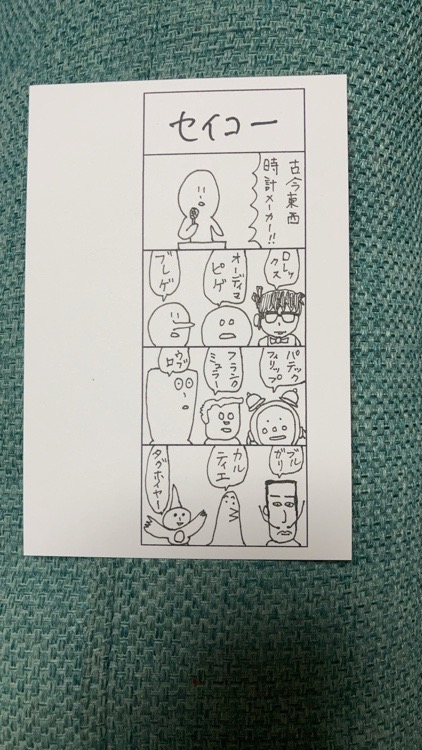 セイコー
古今東西
時計メーカー!!
ロレッ
クス
オーディマ
ピゲ
ブレゲ
パテック
フィリップ
フランク
ミュラー
ウブ
ロ
ブル
ガリ
カル
ティエ
タグホイヤー